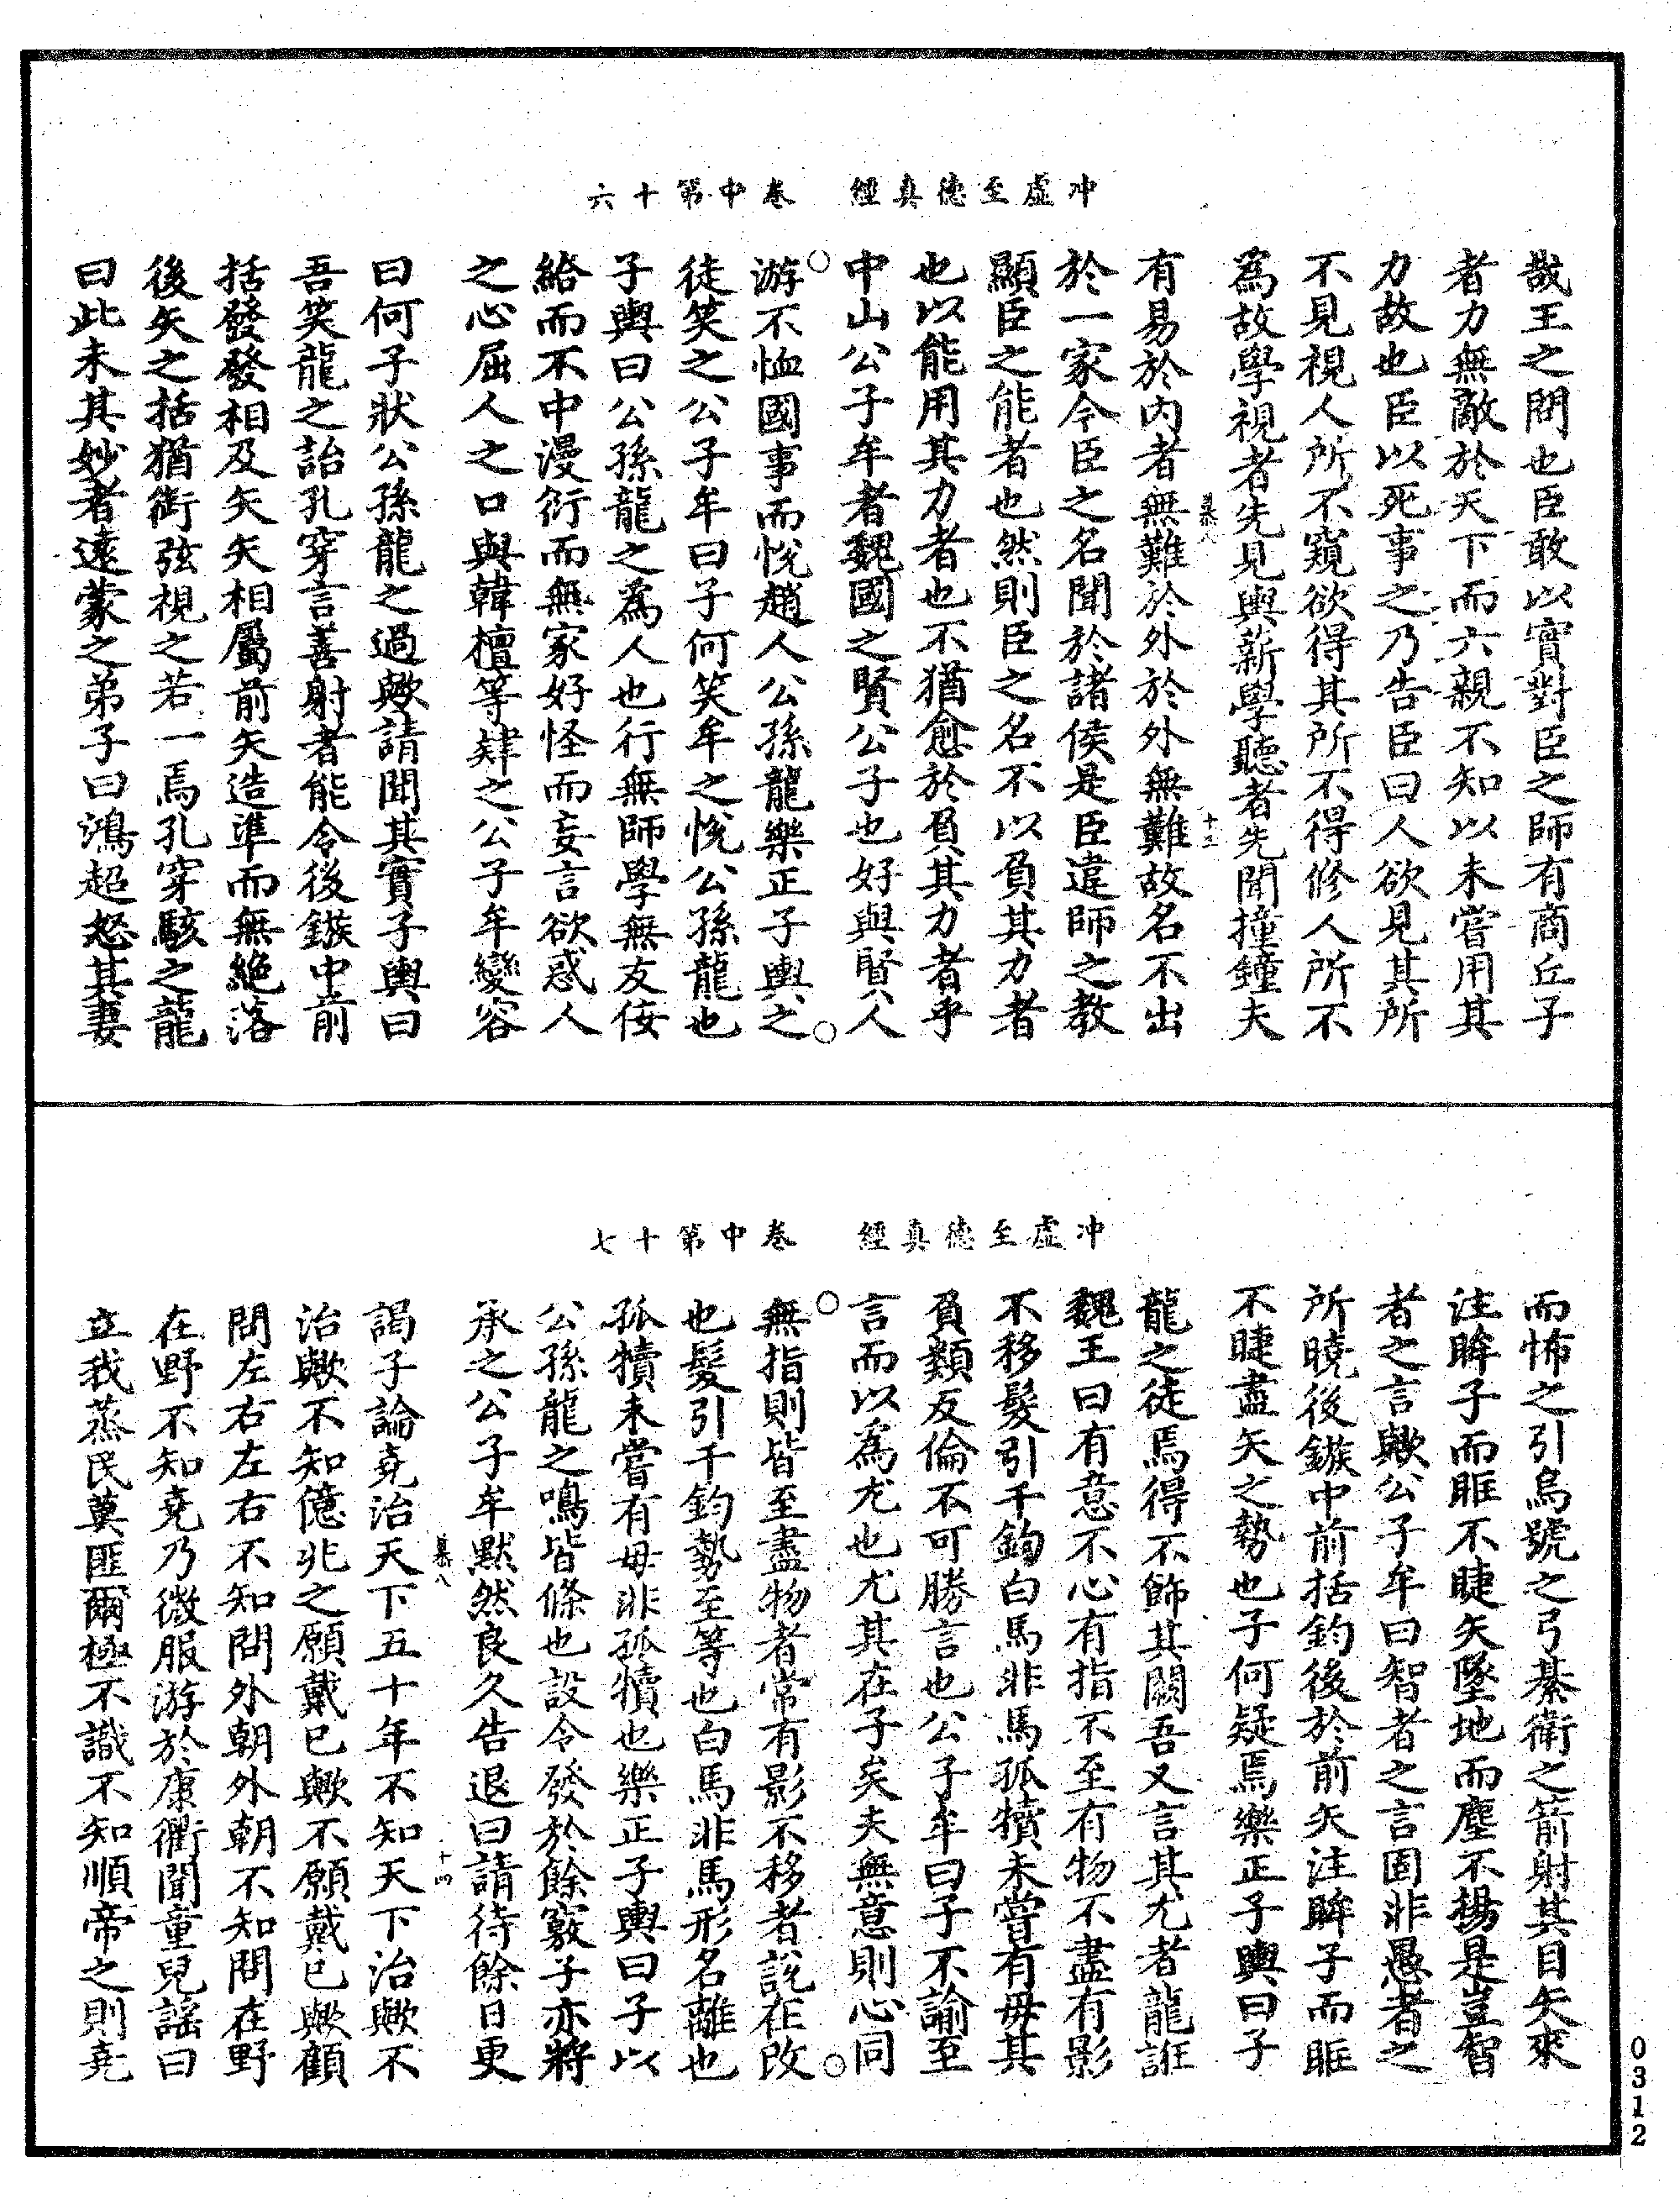 冲虛至德真經　卷中第十六
㪚王之問也臣敢以實對臣之師有商丘子
者力無敵於天下而六親不知以未嘗用其
力故也臣以死事之乃告臣曰人欲見其所
不見視人所不窺欲得其所不得修人所不
爲故學視者先見輿薪學聽者先聞撞鐘夫
慕八　十三
有易於内者無難於外於外無難故名不出
於一家今臣之名聞於諸侯是臣違師之教
顯臣之能者也然則臣之名不以負其力者
也以能用其力者也不猶愈於負其力者乎
中山公子牟者魏國之賢公子也好與賢人
游不恤國事而悅趙人公孫龍樂正子輿之
徒笑之公子牟曰子何笑牟之悅公孫龍也
子輿曰公孫龍之爲人也行無師學無友佞
給而不中漫衍而無家好怪而妄言欲惑人
之心屈人之口與韓檀等肄之公子牟變容
曰何子狀公孫龍之過歟請聞其實子輿曰
吾笑龍之詒孔穿言善射者能令後鏃中前
括發發相及矢矢相屬前矢造準而無絕落
後矢之括猶銜弦視之若一焉孔穿駭之龍
曰此未其妙者逺蒙之弟子曰鴻超怒其妻
冲虛至德真經　卷中第十七
而怖之引烏號之弓綦衛之箭射其目矢來
注眸子而眶不睫矢墜地而塵不揚是豈智
者之言歟公子牟曰智者之言固非愚者之
所曉後鏃中前括鈞後於前矢注眸子而眶
不睫盡矢之勢也子何疑焉樂正子輿曰子
龍之徒焉得不飾其闕吾又言其尤者龍誑
魏王曰有意不心有指不至有物不盡有影
不移髮引千鈞白馬非馬孤犢未嘗有母其
負類反倫不可勝言也公子牟曰子不諭至
言而以爲尤也尤其在子矣夫無意則心同
無指則皆至盡物者常有影不移者說在改
也髮引千鈞勢至等也白馬非馬形名離也
孤犢未嘗有母非孤犢也樂正子輿曰子以
公孫龍之鳴皆條也設令發於餘竅子亦將
承之公子牟默然良久告退曰請待餘日更
慕八　十四
謁子論堯治天下五十年不知天下治歟不
治歟不知億兆之願戴已歟不願戴已歟顧
問左右左右不知問外朝外朝不知問在野
在野不知堯乃微服游於康衢聞童兒謡曰
立我蒸民莫匪爾極不識不知順帝之則堯
0312